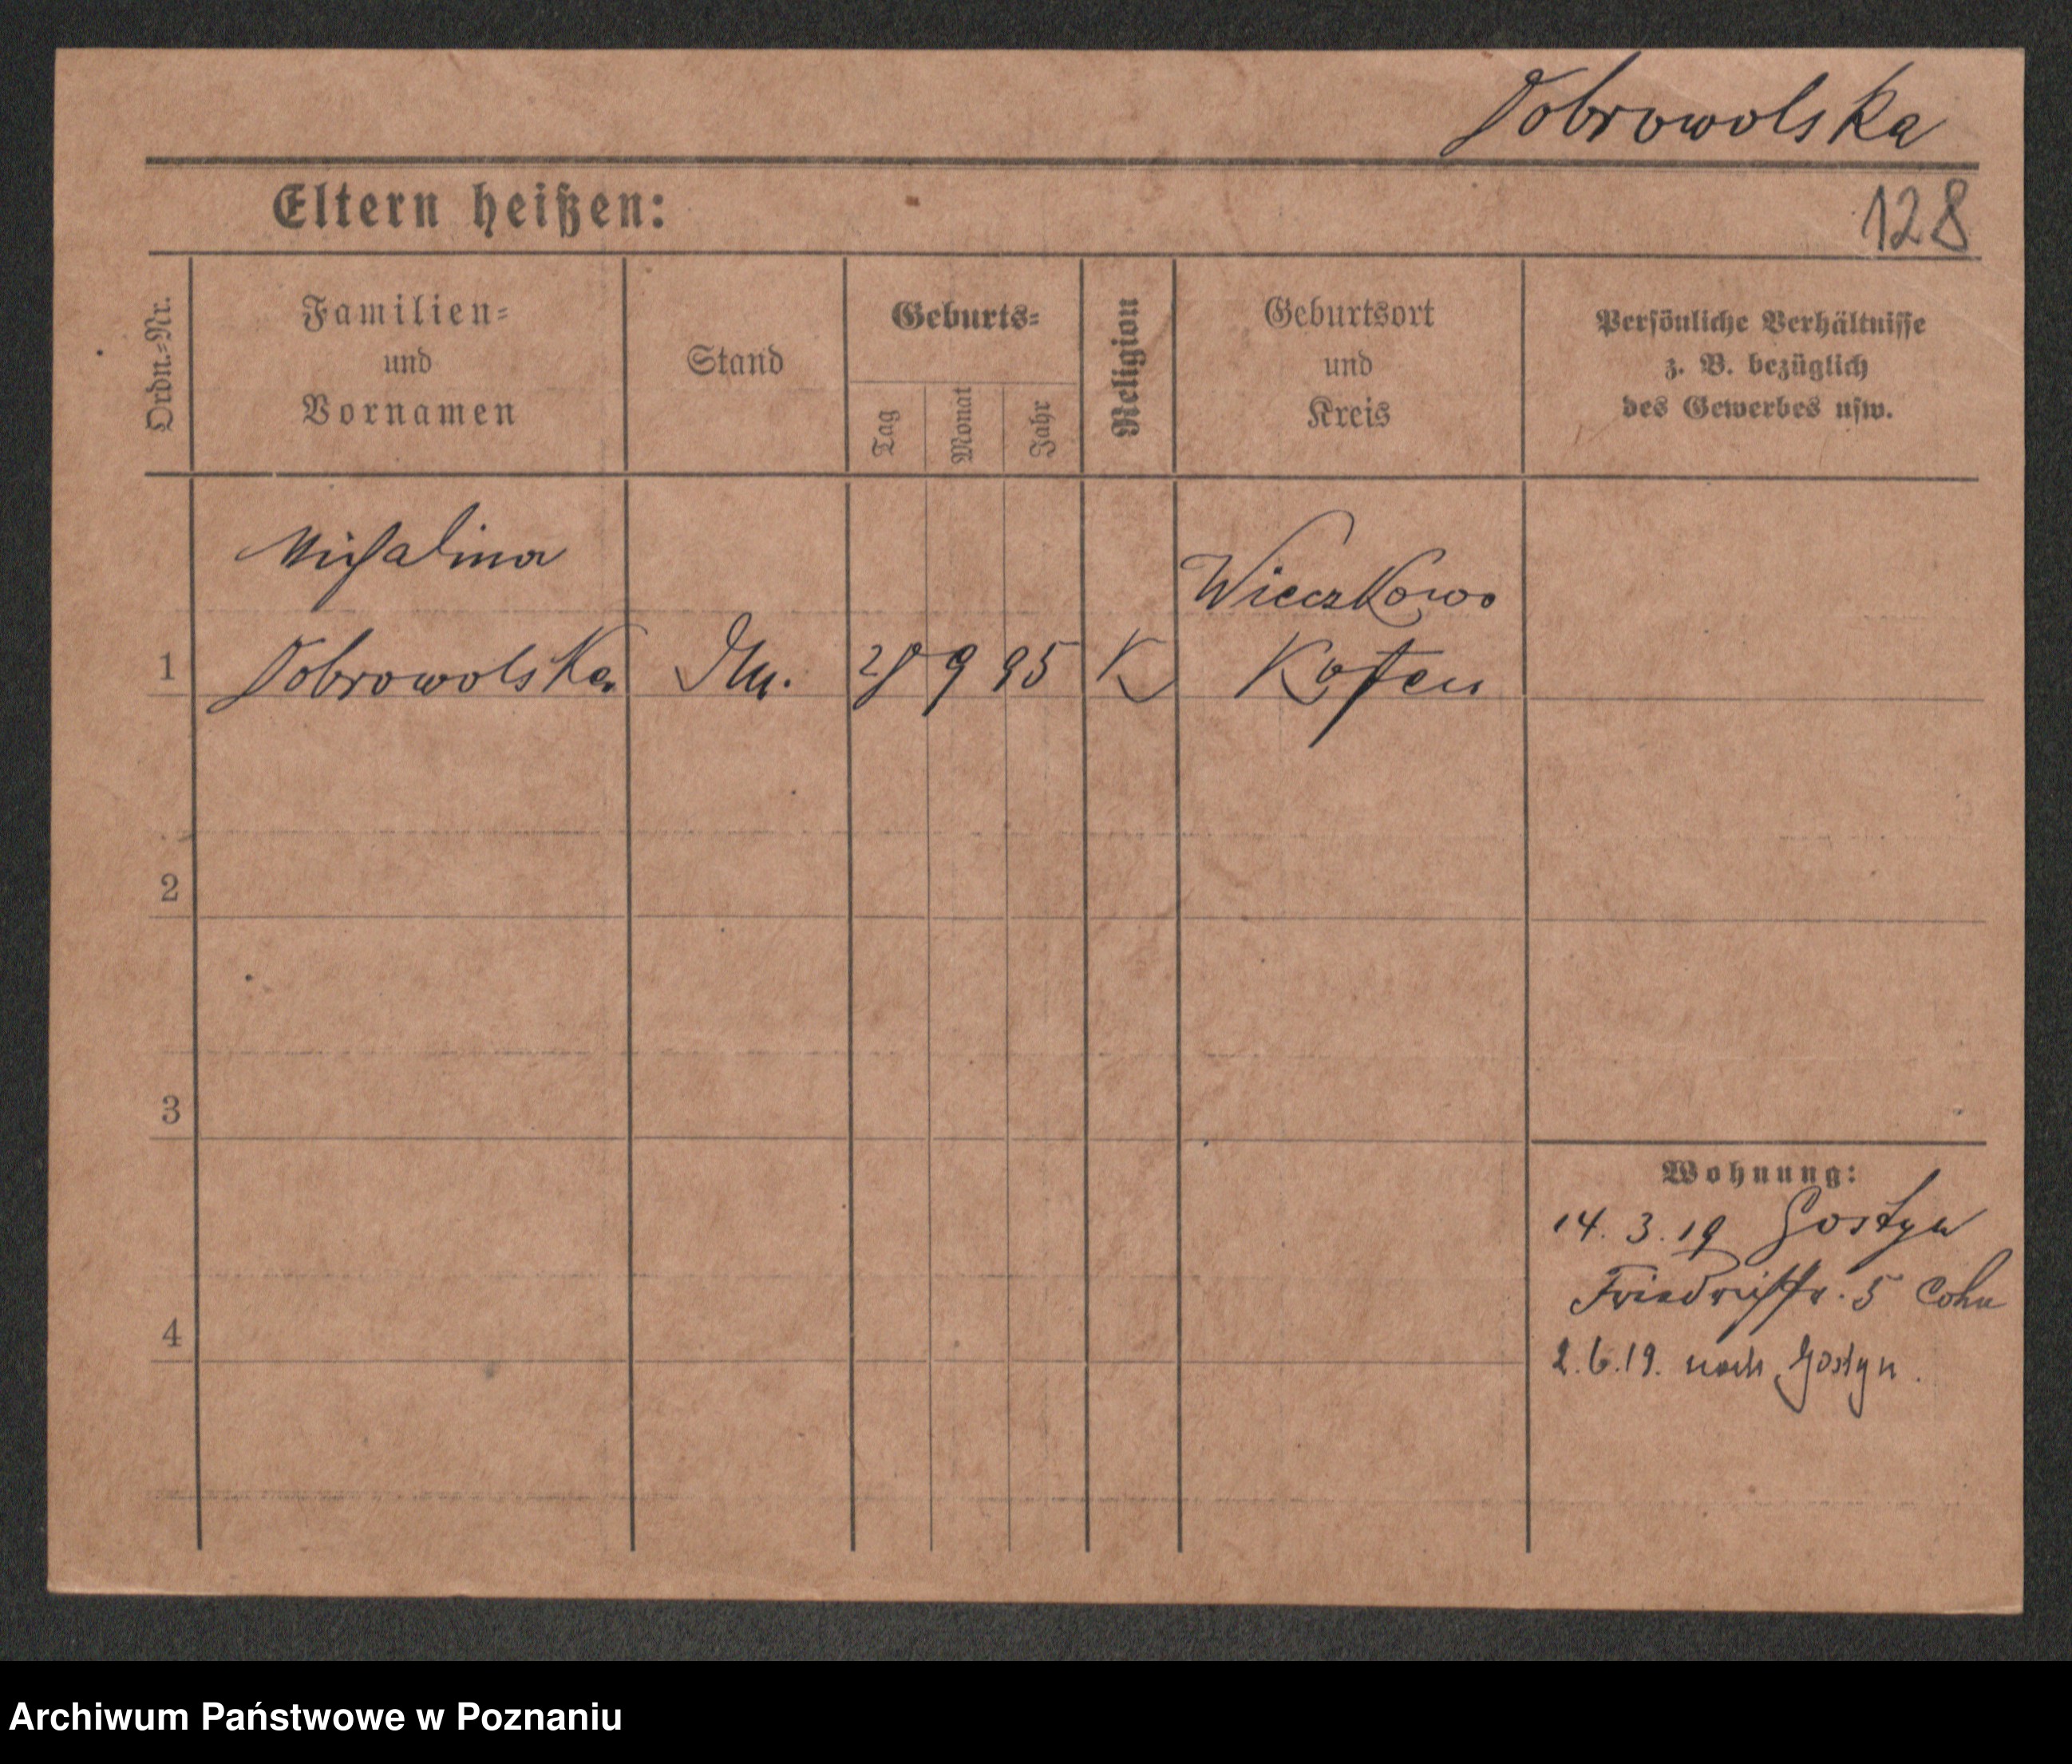 Dobrowolska
Eltern heißen:
128
Ordn.-Nr.
Familien-
und
Vornamen
Stand
Geburts-
Tag
Monat
Jahr
Religion
Geburtsort
und
Kreis
Persönliche Verhältnisse
z. B. bezüglich
des Gewerbes usw.
Michalina
Wieczkowo
1 Dobrowolska 28 9 95 K Kosten
2
3
Wohnung:
14. 3. 19 Gostyn
Friedrichstr. 5 Cohn
4
2.6.19. nach Gostyn.
Archiwum Państwowe w Poznaniu